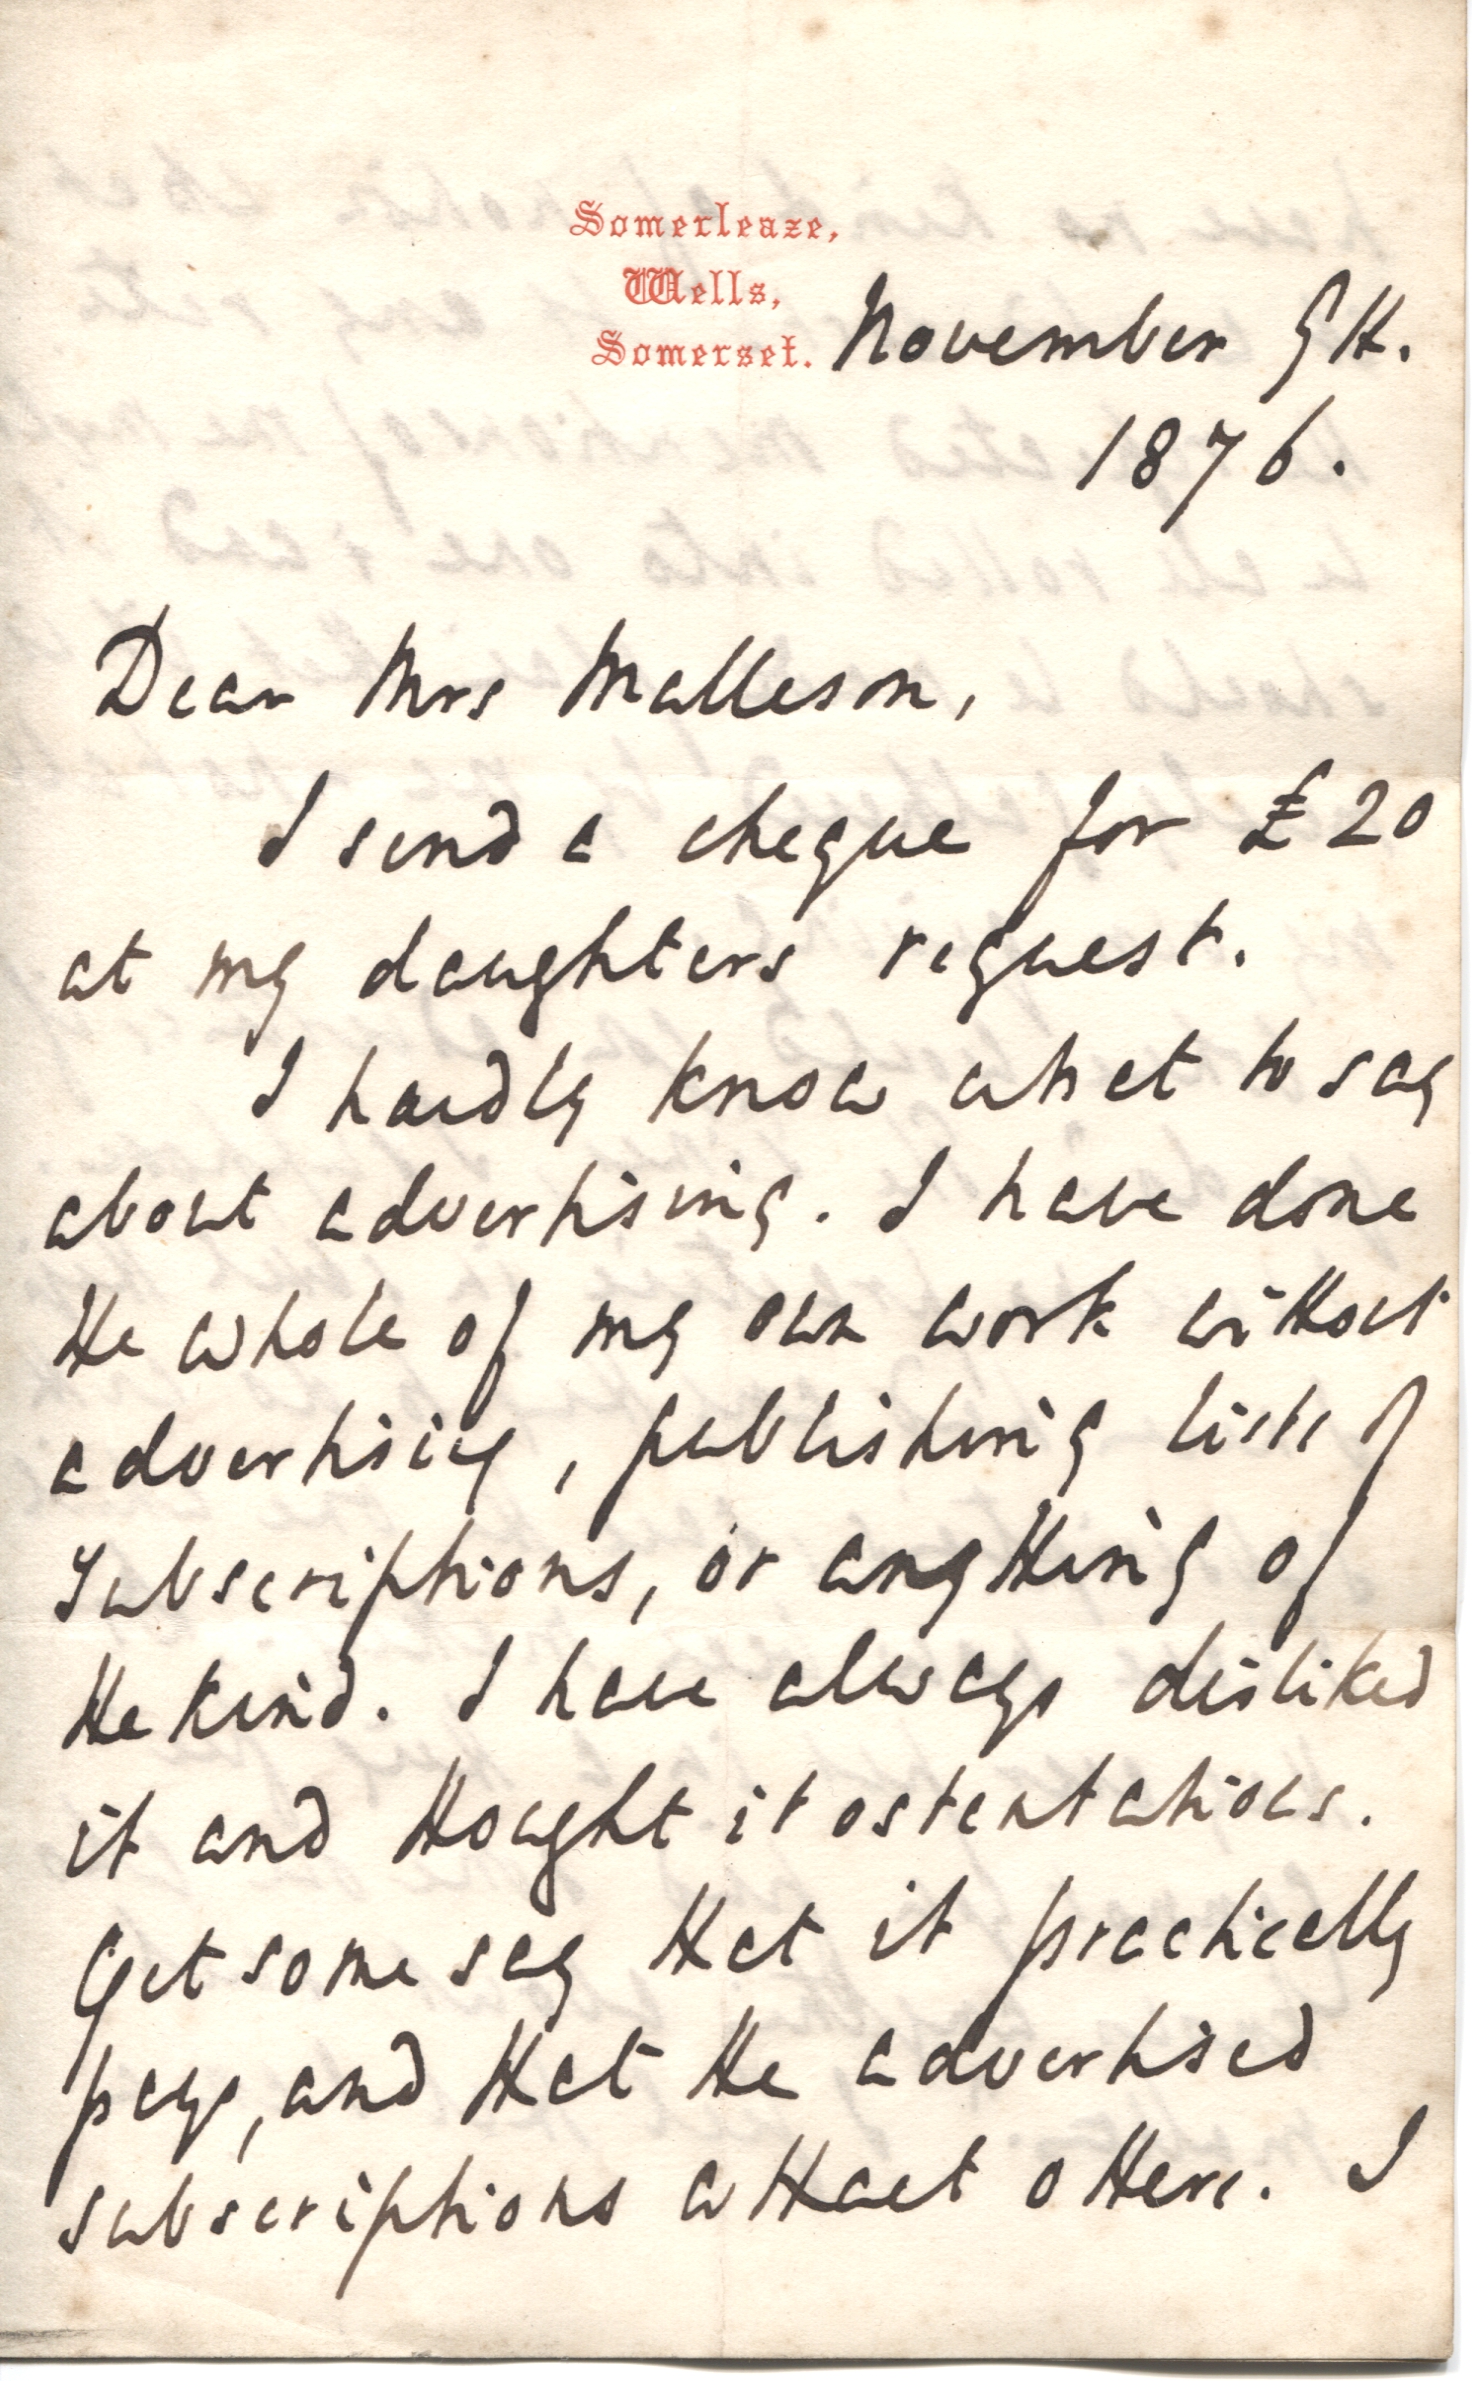 Somerleaze,
Wells,
Somerset. November 9th.
1876.
Dear Mrs Malleson,
I send a cheque for £20
at my daughters request.
I hardly know what to say
about advertising. I have done
the whole of my own work without
advertising, publishing lists of
subscriptions, or anything of
the kind. I have always disliked
it and thought it ostentatious.
Yet some say that it practically
pays, and that the advertised
subscriptions attract others. I